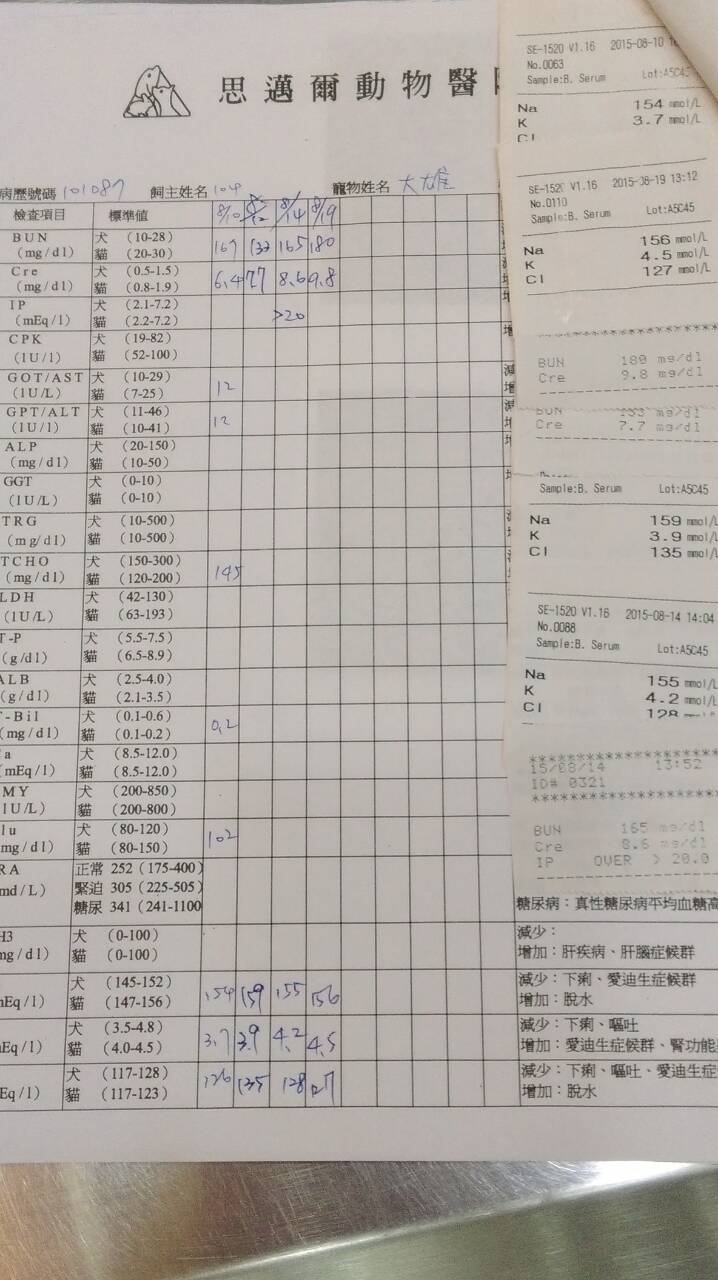 思邁爾動物醫
病歷號碼 101087 飼主姓名 104 寵物姓名 大雄
檢查項目 標準值 8/10 8/14 8/19
BUN 犬 (10-28)
(mg/dl) 貓 (20-30) 167 133 165 180
Cre 犬 (0.5-1.5)
(mg/dl) 貓 (0.8-1.9) 6.4 7.7 8.6 9.8
IP 犬 (2.1-7.2)
(mEq/l) 貓 (2.2-7.2) >20
CPK 犬 (19-82)
(lU/l) 貓 (52-100)
GOT/AST 犬 (10-29)
(lU/L) 貓 (7-25) 12
GPT/ALT 犬 (11-46)
(lU/l) 貓 (10-41) 12
ALP 犬 (20-150)
(mg/dl) 貓 (10-50)
GGT 犬 (0-10)
(lU/L) 貓 (0-10)
TRG 犬 (10-500)
(mg/dl) 貓 (10-500)
TCHO 犬 (150-300)
(mg/dl) 貓 (120-200) 145
LDH 犬 (42-130)
(lU/L) 貓 (63-193)
T-P 犬 (5.5-7.5)
(g/dl) 貓 (6.5-8.9)
ALB 犬 (2.5-4.0)
(g/dl) 貓 (2.1-3.5)
T-Bil 犬 (0.1-0.6)
(mg/dl) 貓 (0.1-0.2) 0.2
a 犬 (8.5-12.0)
(mEq/l) 貓 (8.5-12.0)
MY 犬 (200-850)
lU/L) 貓 (200-800)
lu 犬 (80-120)
mg/dl) 貓 (80-150) 102
RA 正常 252 (175-400)
md/L) 緊迫 305 (225-505)
糖尿 341 (241-1100
糖尿病：真性糖尿病平均血糖高
H3 犬 (0-100) 減少：
mg/dl) 貓 (0-100) 增加：肝疾病、肝腦症候群
犬 (145-152) 減少：下痢、愛迪生症候群
mEq/l) 貓 (147-156) 154 159 155 156 增加：脫水
犬 (3.5-4.8) 減少：下痢、嘔吐
mEq/l) 貓 (4.0-4.5) 3.7 3.9 4.2 4.5 增加：愛迪生症候群、腎功能
犬 (117-128) 減少：下痢、嘔吐、愛迪生症
Eq/l) 貓 (117-123) 126 135 128 127 增加：脫水
SE-1520 V1.16 2015-08-10
No.0063
Sample:B. Serum Lot:A5C45
Na 154 mmol/L
K 3.7 mmol/L
Cl
SE-1520 V1.16 2015-08-19 13:12
No.0110
Sample:B. Serum Lot:A5C45
Na 156 mmol/L
K 4.5 mmol/L
Cl 127 mmol/L
BUN 180 mg/dl
Cre 9.8 mg/dl
BUN 133 mg/dl
Cre 7.7 mg/dl
Sample:B. Serum Lot:A5C45
Na 159 mmol/L
K 3.9 mmol/L
Cl 135 mmol/L
SE-1520 V1.16 2015-08-14 14:04
No.0088
Sample:B. Serum Lot:A5C45
Na 155 mmol/L
K 4.2 mmol/L
Cl 128 mmol/L
********************
15/08/14 13:52
ID# 0321
********************
BUN 165 mg/dl
Cre 8.6 mg/dl
IP OVER > 20.0